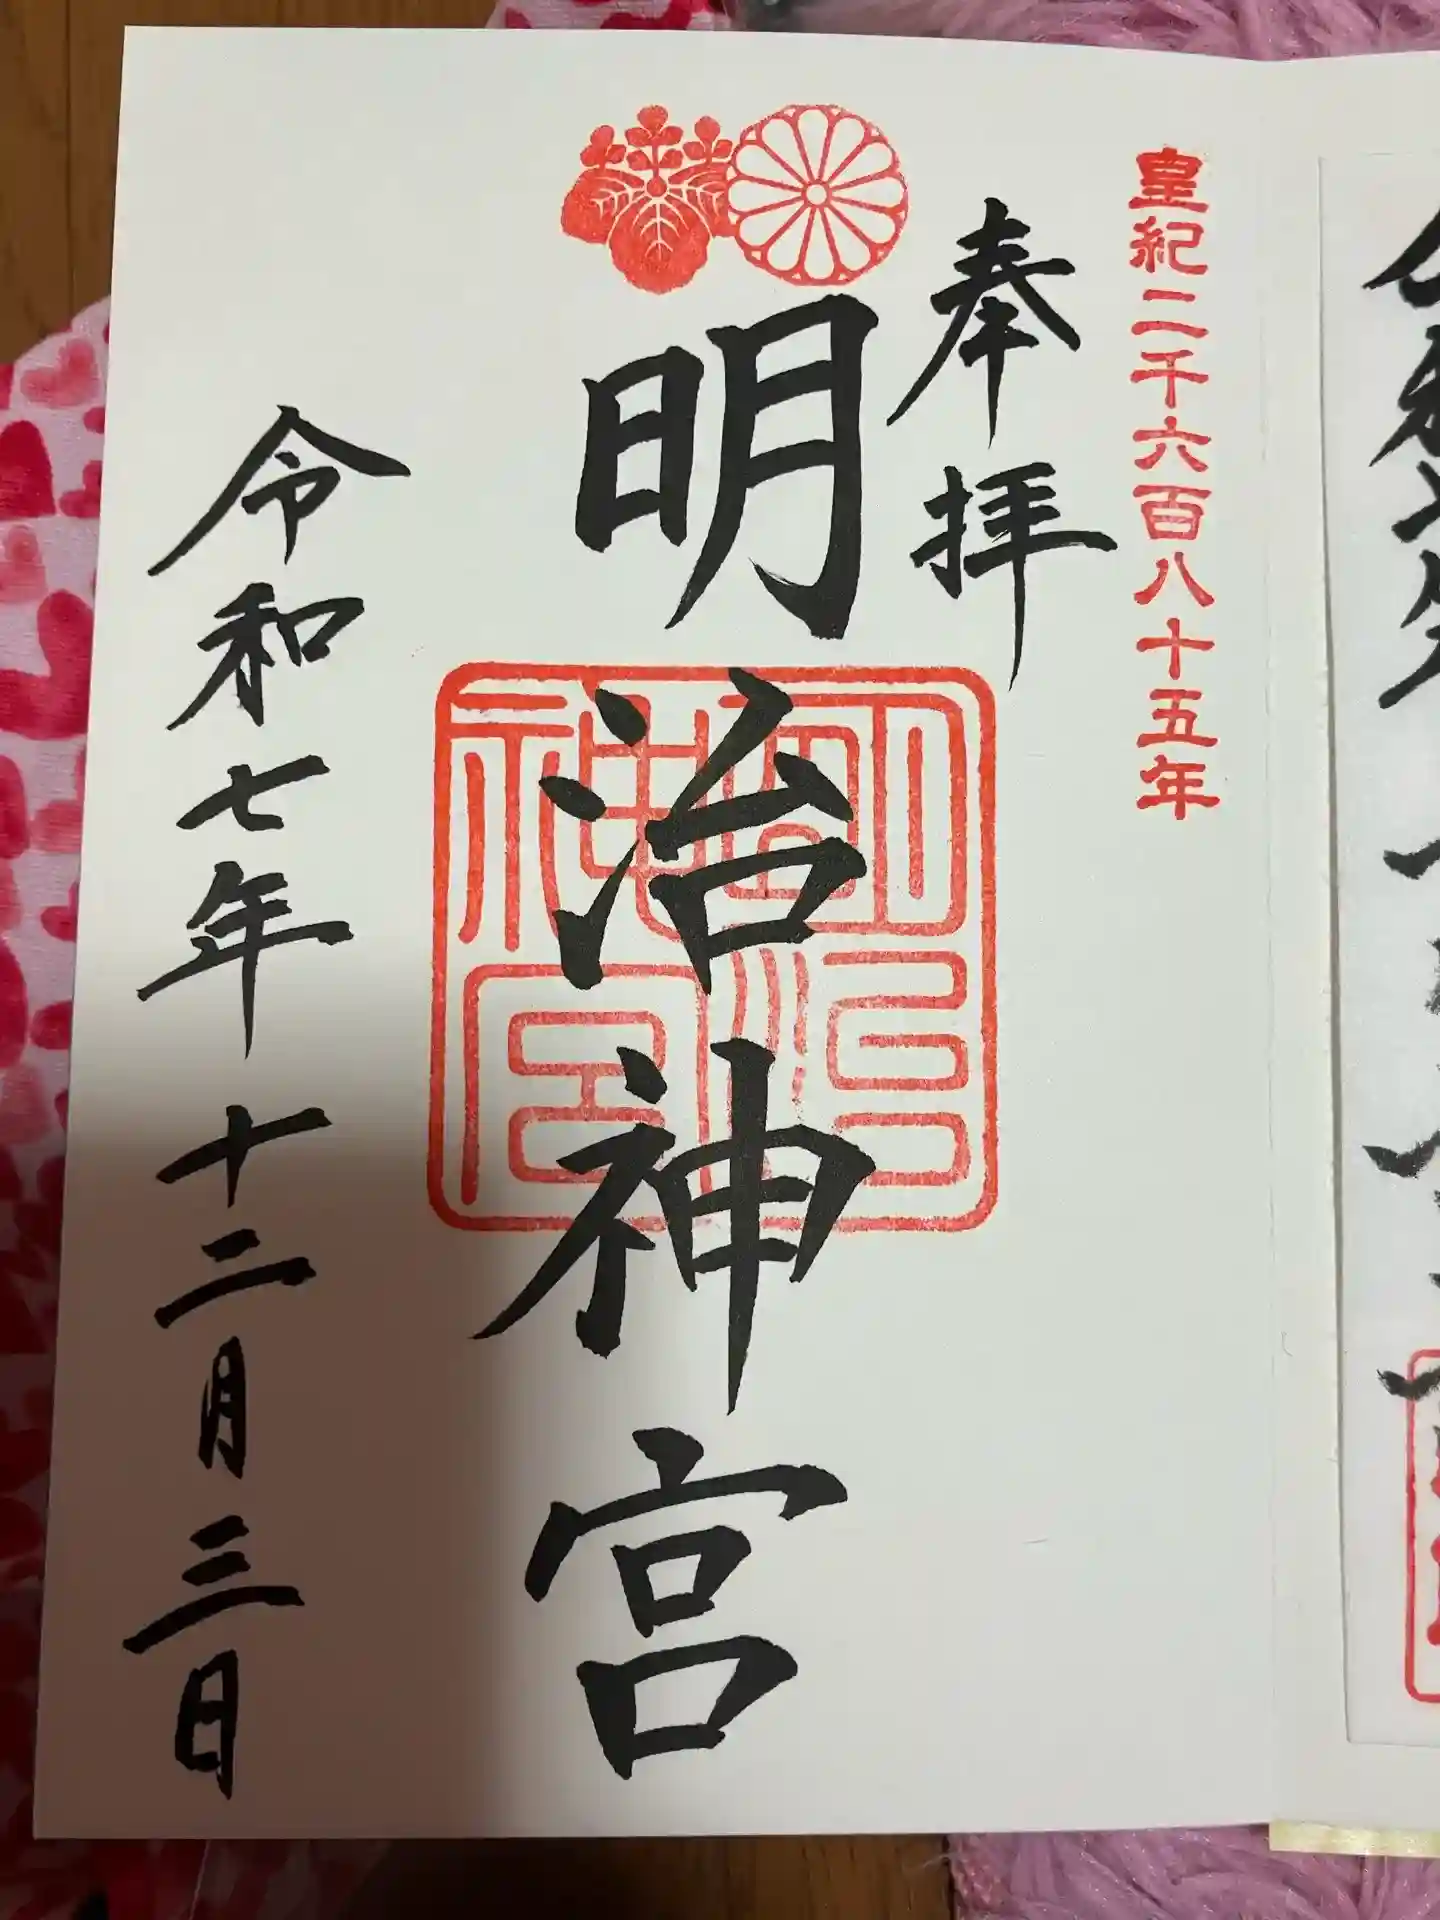 皇紀二千六百八十五年
奉拝
明治神宮
明治神宮
令和七年十二月三日